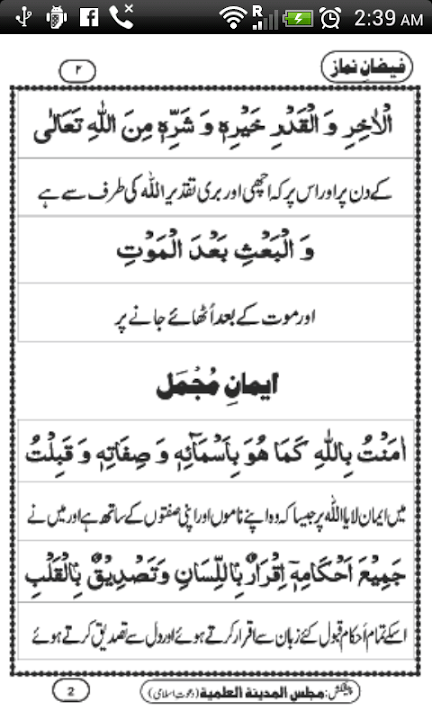 2:39 AM
فیضانِ نماز
۲
الْاٰخِرِ وَ الْقَدْرِ خَیْرِهٖ وَ شَرِّهٖ مِنَ اللّٰهِ تَعَالٰی
کے دن پر اور اس پر کہ اچھی اور بری تقدیر اللہ کی طرف سے ہے
وَ الْبَعْثِ بَعْدَ الْمَوْتِ
اور موت کے بعد اُٹھائے جانے پر
ایمانِ مُجْمَل
اٰمَنْتُ بِاللّٰهِ کَمَا هُوَ بِاَسْمَآئِهٖ وَ صِفَاتِهٖ وَ قَبِلْتُ
میں ایمان لایا اللہ پر جیسا کہ وہ اپنے ناموں اور اپنی صفتوں کے ساتھ ہے اور میں نے
جَمِیْعَ اَحْکَامِهٖۤ اِقْرَارٌۢ بِاللِّسَانِ وَ تَصْدِیْقٌۢ بِالْقَلْبِ
اسکے تمام اَحکام قبول کئے زبان سے اقرار کرتے ہوئے اور دل سے تصدیق کرتے ہوئے
پیشکش: مجلس المدینة العلمیة (دعوتِ اسلامی)
2